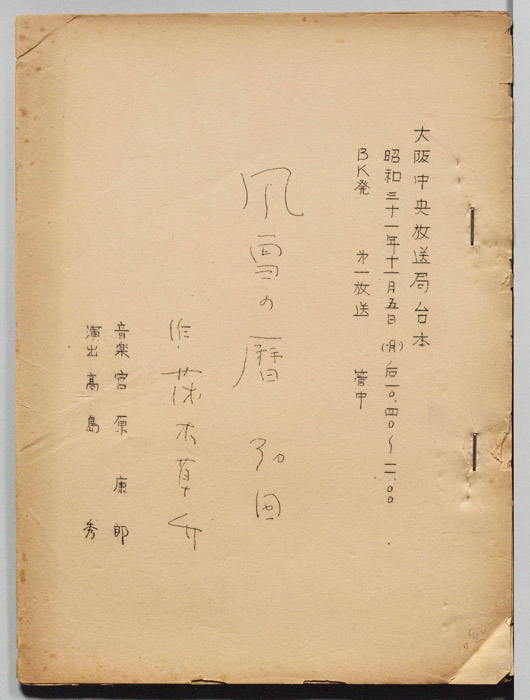 大阪中央放送局台本
昭和三十一年十一月五日(月)后一〇.四〇〜一一.〇〇
BK発 㐧一放送 管中
風雪の暦 回
作 茂木草介
音楽 宮原康郎
演出 高島秀